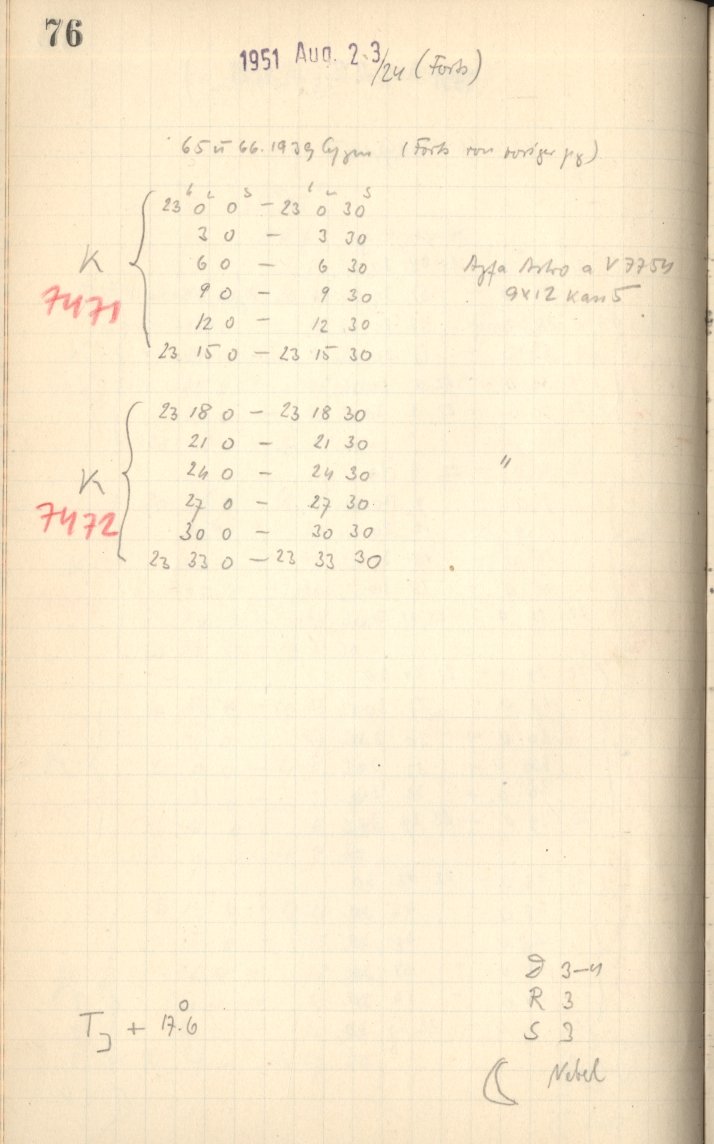 76
1951 Aug. 23/24 (Forts)
65 u 66.1939 Cygni (Forts von voriger pg)
23 h 0 m 0 s – 23 h 0 m 30 s
3 0 – 3 30
K 6 0 – 6 30 Agfa Astro a V 7754
7471 9 0 – 9 30 9x12 Kass 5
12 0 – 12 30
23 15 0 – 23 15 30
23 18 0 – 23 18 30
21 0 – 21 30
K 24 0 – 24 30 "
7472 27 0 – 27 30
30 0 – 30 30
23 33 0 – 23 33 30
D 3–4
R 3
T + 17.6° S 3
Nebel